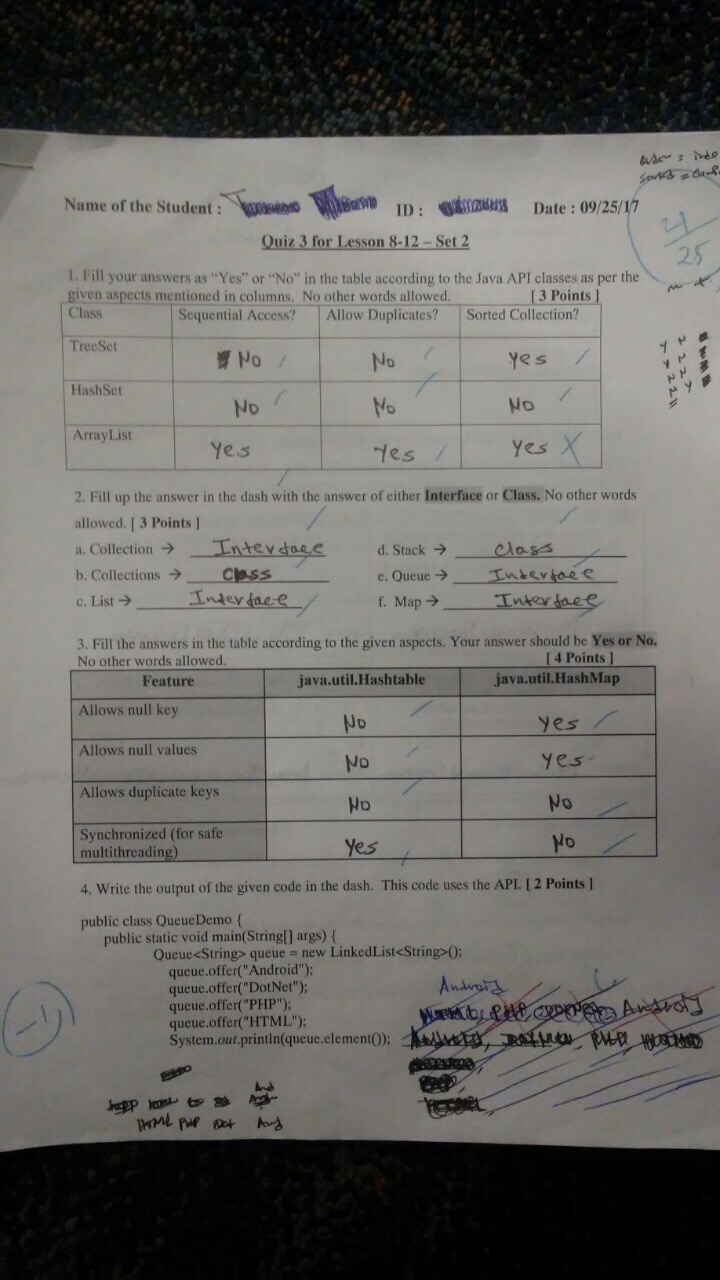 Name of the Student : ID : Date : 09/25/17
21
25
Quiz 3 for Lesson 8-12 – Set 2
1. Fill your answers as "Yes" or "No" in the table according to the Java API classes as per the
given aspects mentioned in columns. No other words allowed. [ 3 Points ]
Class Sequential Access? Allow Duplicates? Sorted Collection?
TreeSet No No Yes
HashSet No No No
ArrayList Yes Yes Yes
2. Fill up the answer in the dash with the answer of either Interface or Class. No other words
allowed. [ 3 Points ]
a. Collection → Interface d. Stack → class
b. Collections → Class e. Queue → Interface
c. List → Interface f. Map → Interface
3. Fill the answers in the table according to the given aspects. Your answer should be Yes or No.
No other words allowed. [ 4 Points ]
Feature java.util.Hashtable java.util.HashMap
Allows null key No Yes
Allows null values No Yes
Allows duplicate keys No No
Synchronized (for safe
multithreading) Yes No
4. Write the output of the given code in the dash. This code uses the API. [ 2 Points ]
public class QueueDemo {
public static void main(String[] args) {
Queue<String> queue = new LinkedList<String>();
queue.offer("Android");
queue.offer("DotNet");
queue.offer("PHP");
queue.offer("HTML");
System.out.println(queue.element());
Android
PHP Android
PHP
-1
And
HTML PHP Dot And